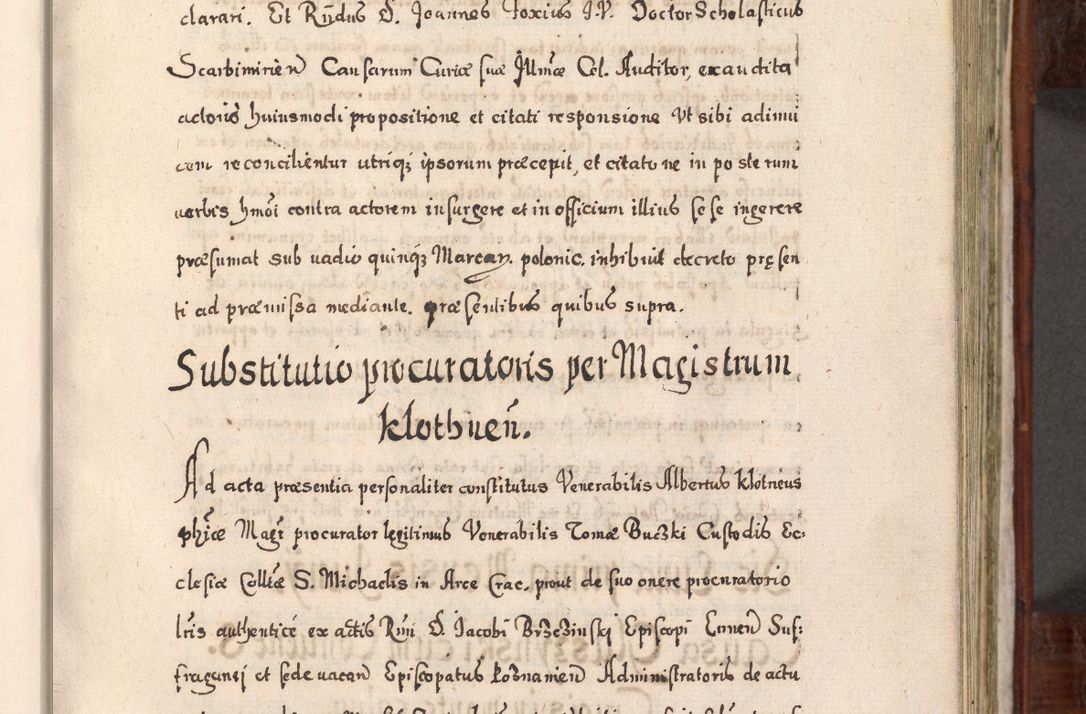 clarari. Et Rndus D. Joannes Foxius I.V. Doctor Scholasticus
Scarbimirien Causarum Curiæ suæ Illmæ Cel. Auditor, exaudita
actoris huiusmodi propositione et citati responsione Vt sibi adinui
cem reconcilientur utriqȝ ipsorum præcepit, et citato ne in posterum
uerbis hmoi contra actorem insurgere et in officium illius sese ingerere
præsumat sub uadio quinqȝ Marcar. polonic. inhibuit decreto pręsen
ti ad præmissa mediante. præsentibus quibus supra.
Substitutio procuratoris per Magistrum
klothnen.
Ad acta præsentia personaliter constitutus Venerabilis Albertus klotneus
phiæ Magr procurator legitimus Venerabilis Tomæ Buczki Custodis Ec:
clesiæ Colltæ S. Michaelis in Arce Crac. prout de suo onere procuratorio
lris authenticé ex actis Rmi D. Jacobi Brzezinski Episcopi Ennen Suf:
fraganei et sede uacan Episcopatus Poznanien Administratoris de actu